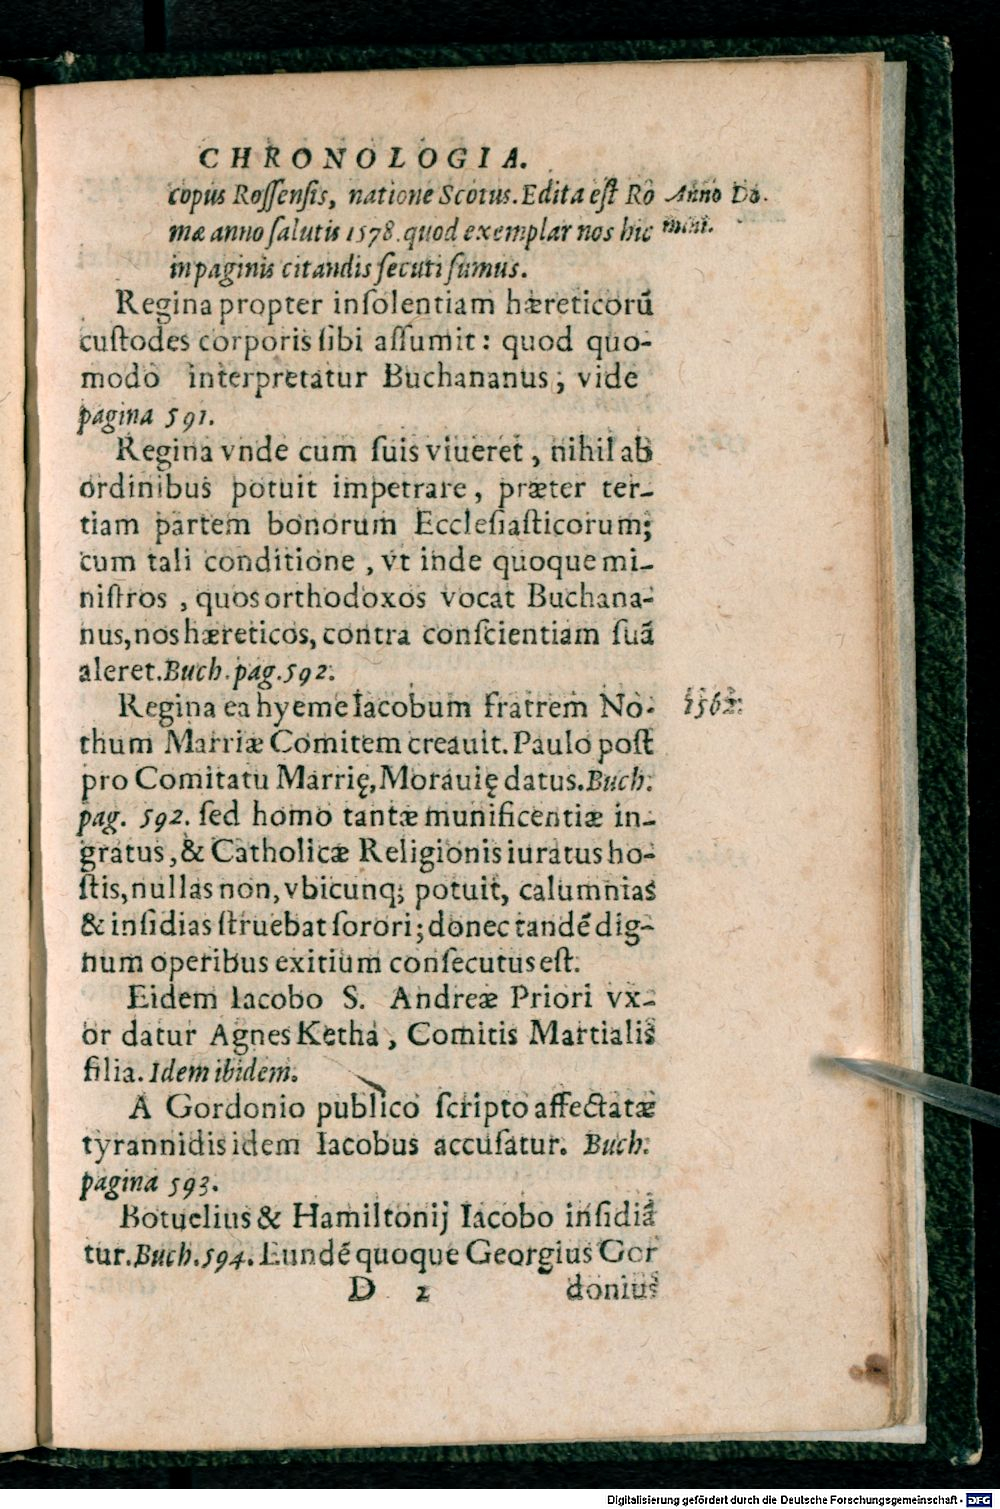 CHRONOLOGIA.
copus Roſſenſis, natione Scotus. Edita eſt Ro
mæ anno ſalutis 1578. quod exemplar nos hic
in paginis citandis ſecuti ſumus.
Anno Do.
mini.
Regina propter inſolentiam hæreticorū
cuſtodes corporis ſibi aſſumit: quod quo-
modo interpretatur Buchananus; vide
pagina 591.
Regina vnde cum ſuis viueret, nihil ab
ordinibus potuit impetrare, præter ter-
tiam partem bonorum Eccleſiaſticorum;
cum tali conditione, vt inde quoque mi-
niſtros, quos orthodoxos vocat Buchana-
nus, nos hæreticos, contra conſcientiam ſuā
aleret. Buch. pag. 592.
Regina ea hyeme Iacobum fratrem No-
1562.
thum Marriæ Comitem creauit. Paulo poſt
pro Comitatu Marrię, Morauię datus. Buch.
pag. 592. ſed homo tantæ munificentiæ in-
gratus, & Catholicæ Religionis iuratus ho-
ſtis, nullas non, vbicunq; potuit, calumnias
& inſidias ſtruebat ſorori; donec tandē dig-
num operibus exitium conſecutus eſt.
Eidem Iacobo S. Andreæ Priori vx-
or datur Agnes Ketha, Comitis Martialis
filia. Idem ibidem.
A Gordonio publico ſcripto affectatæ
tyrannidis idem Iacobus accuſatur. Buch.
pagina 593.
Botuelius & Hamiltonij Iacobo inſidiā
tur. Buch. 594. Eundē quoque Georgius Gor
D 2 donius
Digitalisierung gefördert durch die Deutsche Forschungsgemeinschaft - DFG